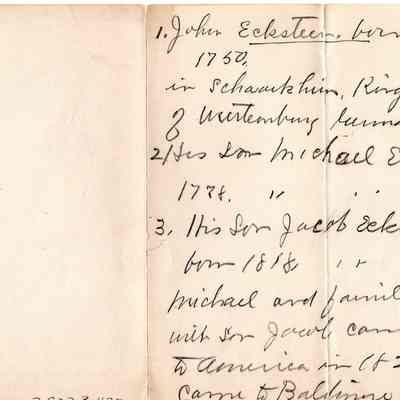 1. John Eckstein, born
1750.
in Schaarkhim, King
of Würtemburg
2/His Son Michael E
1778. "  "  "
3. His Son Jacob Eck
born 1818 " "
Michael and famil
with son Jacob cam
to America in 182
came to Baltimore